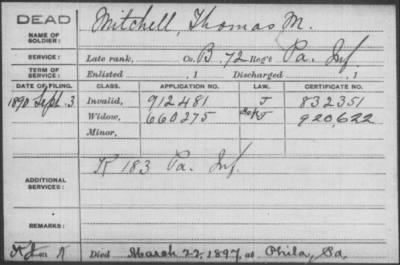 DEAD
NAME OF SOLDIER: Mitchell, Thomas M.
SERVICE: Late rank, Co. B, 72 Reg't Pa. Inf.
TERM OF SERVICE: Enlisted , 1 Discharged , 1
DATE OF FILING. CLASS. APPLICATION NO. LAW. CERTIFICATE NO.
1890 Sept. 3 Invalid, 912481 J 832351
Widow, 660275 920,622
Minor,
ADDITIONAL SERVICES: K 183 Pa. Inf.
REMARKS:
Died March 22, 1897, at Phila, Pa.